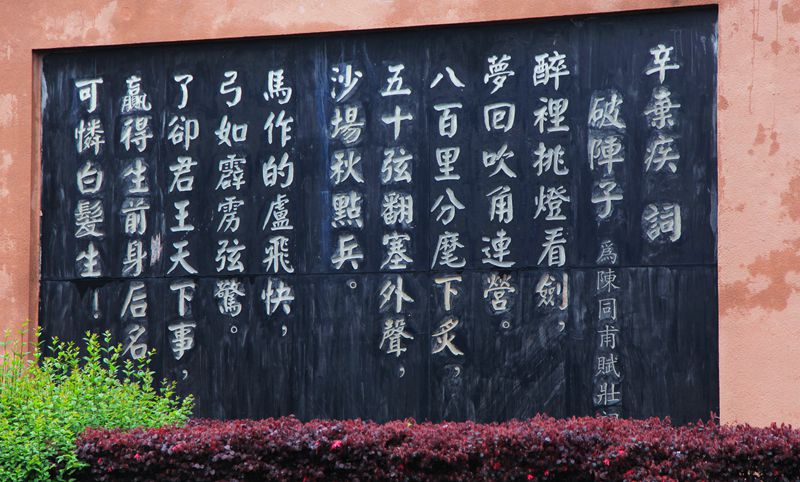 辛棄疾 詞
破陣子 為陳同甫賦壯詞
醉裡挑燈看劍，
夢回吹角連營。
八百里分麾下炙，
五十弦翻塞外聲，
沙場秋點兵。
馬作的盧飛快，
弓如霹雳弦驚。
了卻君王天下事，
贏得生前身后名。
可憐白髮生！